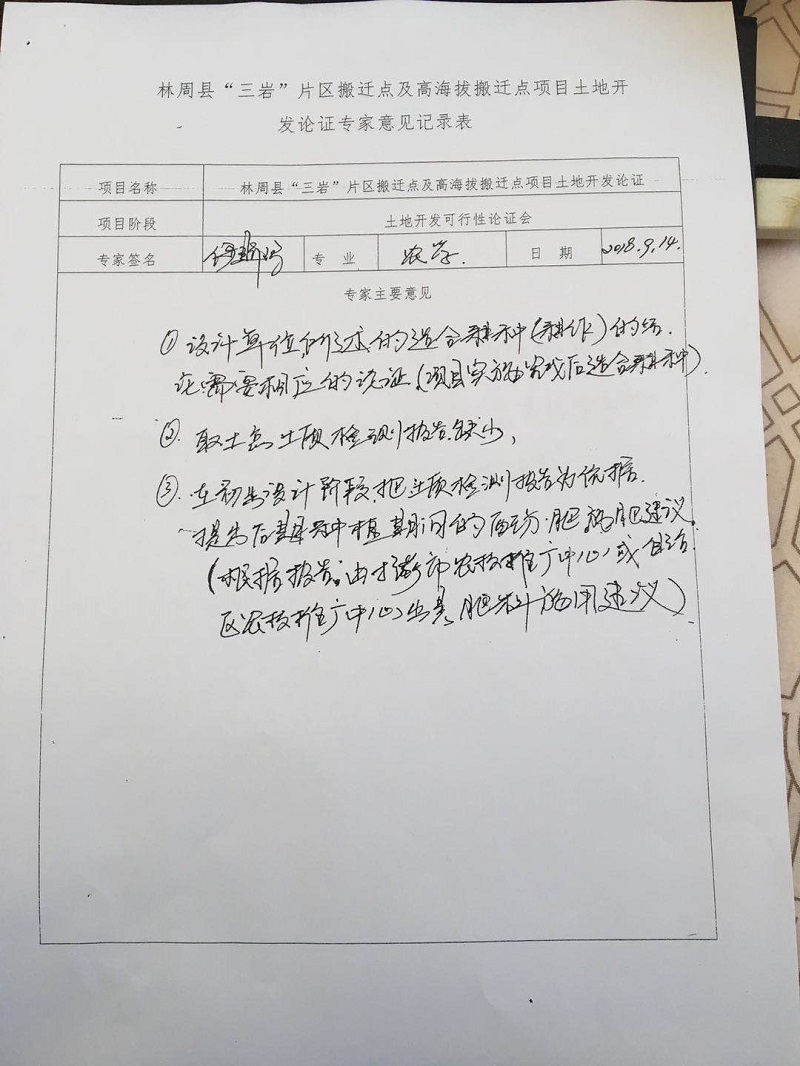 林周县“三岩”片区搬迁点及高海拔搬迁点项目土地开
发论证专家意见记录表
项目名称 林周县“三岩”片区搬迁点及高海拔搬迁点项目土地开发论证
项目阶段 土地开发可行性论证会
专家签名 专业 农学. 日期 2018.9.14.
专家主要意见
① 设计单位所述的适合耕种(耕作)的
需要相应的认证(项目实施完成后适合耕种).
②. 取土点土质检测报告缺少,
③. 在初步设计阶段,把土质检测报告为依据.
提出后期种植期间的配方肥施肥建议.
(根据报告.由拉萨市农技推广中心或自治
区农技推广中心出具肥料施用建议)